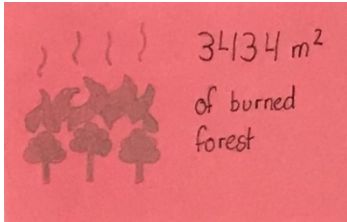 34134 m²
of burned
forest